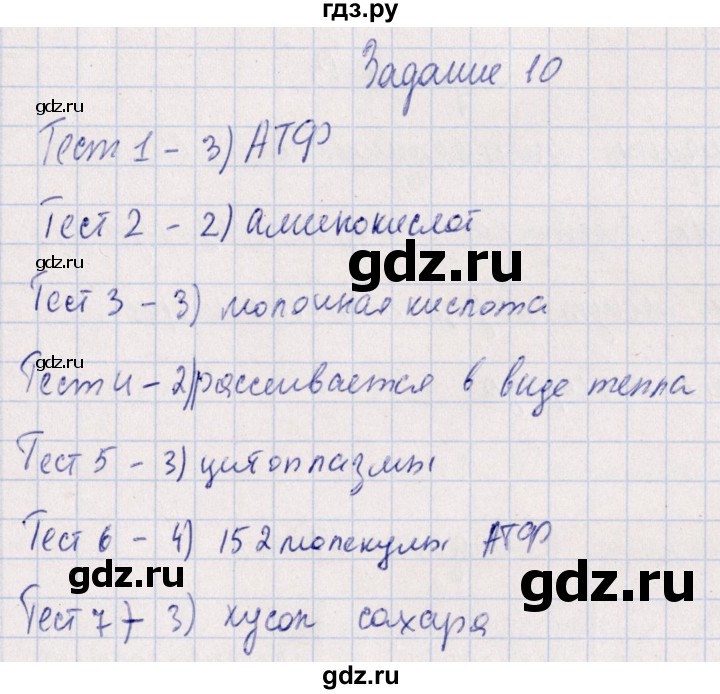 гдз.ру
Задание 10
gdz.ru
Тест 1 - 3) АТФ
Тест 2 - 2) аминокислот
gdz.ru
gdz.ru
Тест 3 - 3) молочная кислота
gdz.ru
Тест 4 - 2) рассеивается в виде тепла
Тест 5 - 3) цитоплазмы
Тест 6 - 4) 152 молекулы АТФ
gdz.ru
gdz.ru
Тест 7 - 3) кусок сахара
gdz.ru